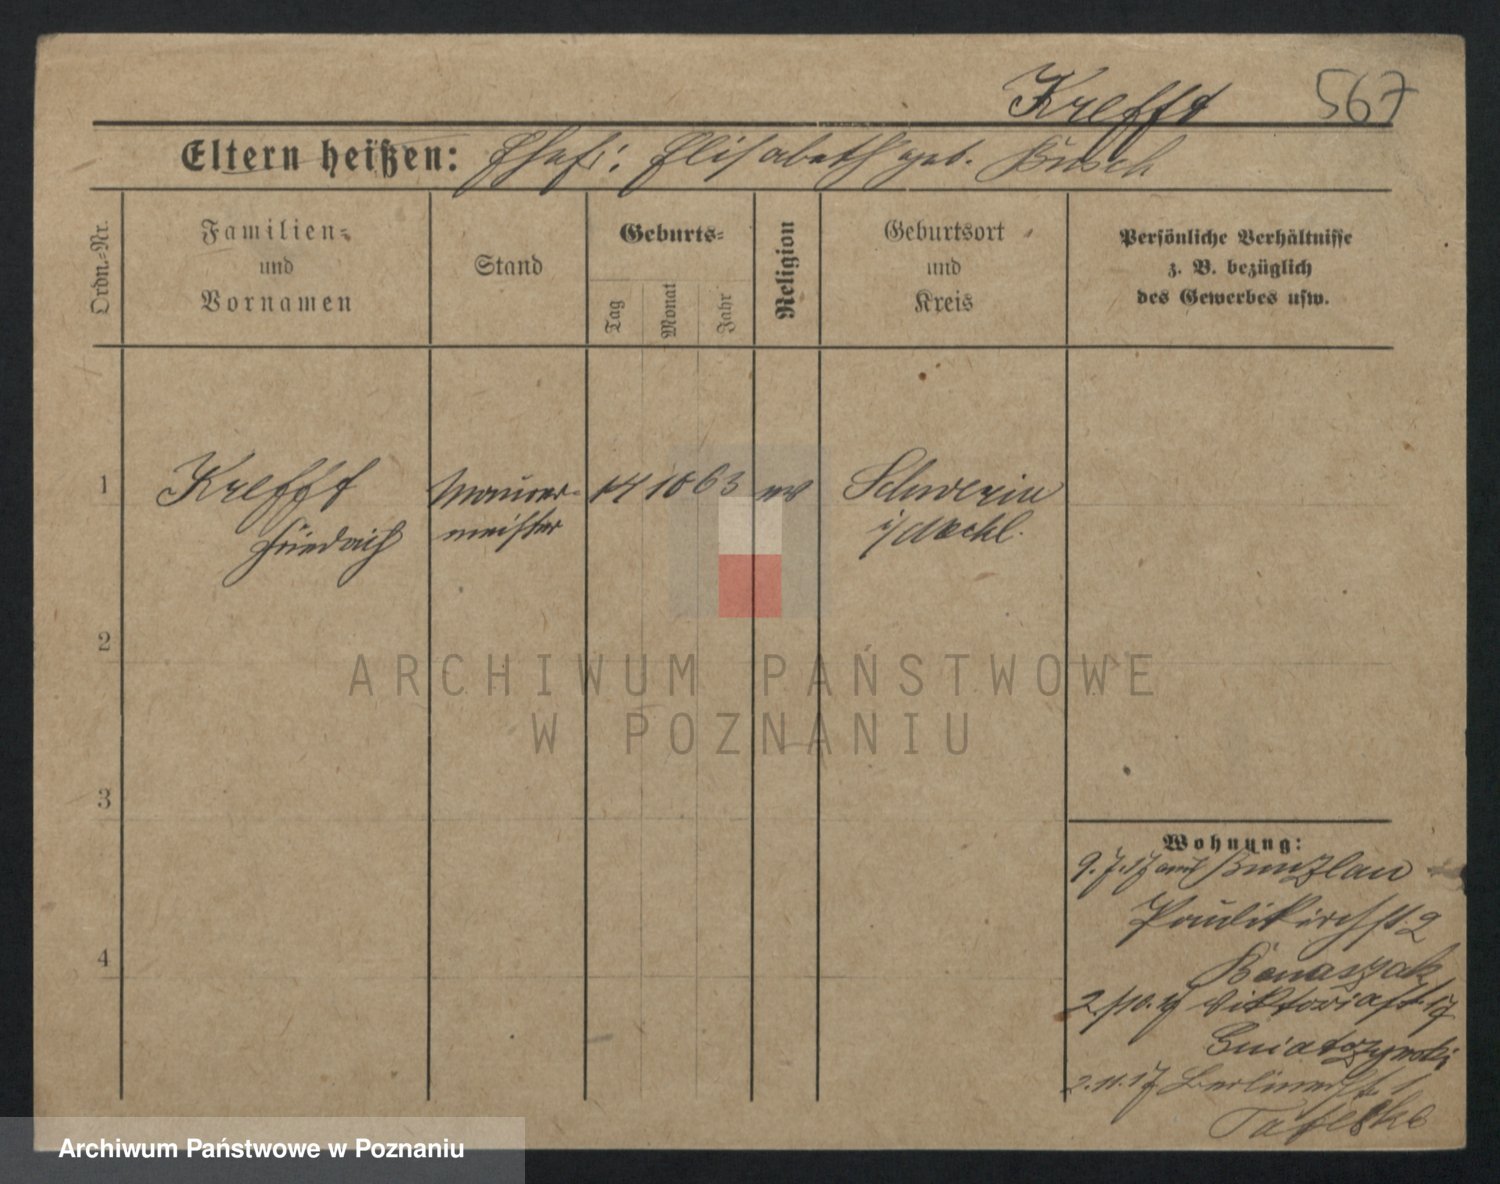 Krefft 567
Eltern heißen: Ehefr: Elisabeth geb. Busch
Ordn.=Nr.
Familien=
und
Vornamen
Stand
Geburts=
Tag
Monat
Jahr
Religion
Geburtsort
und
Kreis
Persönliche Verhältnisse
z. B. bezüglich
des Gewerbes usw.
1 Krefft Maurer- 14 10 63 ev Schwerin
Friedrich meister i/Meckl.
2
3
4
Wohnung:
9.7.17 aus Bunzlau
Paulikirchst. 2
Banaszak
2/10.17 Viktoriast. 17
2.11.17 Berlinerst. 1
ARCHIWUM PAŃSTWOWE
W POZNANIU
Archiwum Państwowe w Poznaniu